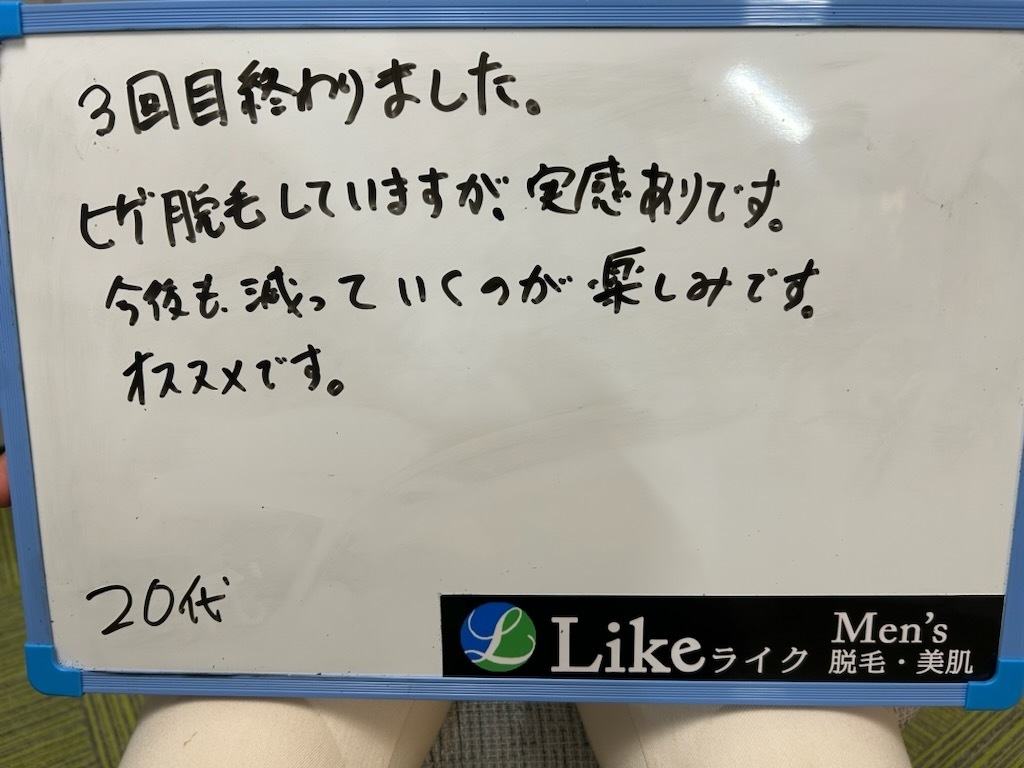 3回目終わりました。
ヒゲ脱毛していますが、実感ありです。
今後も、減っていくのが楽しみです。
オススメです。
20代
L Likeライク Men's
脱毛・美肌